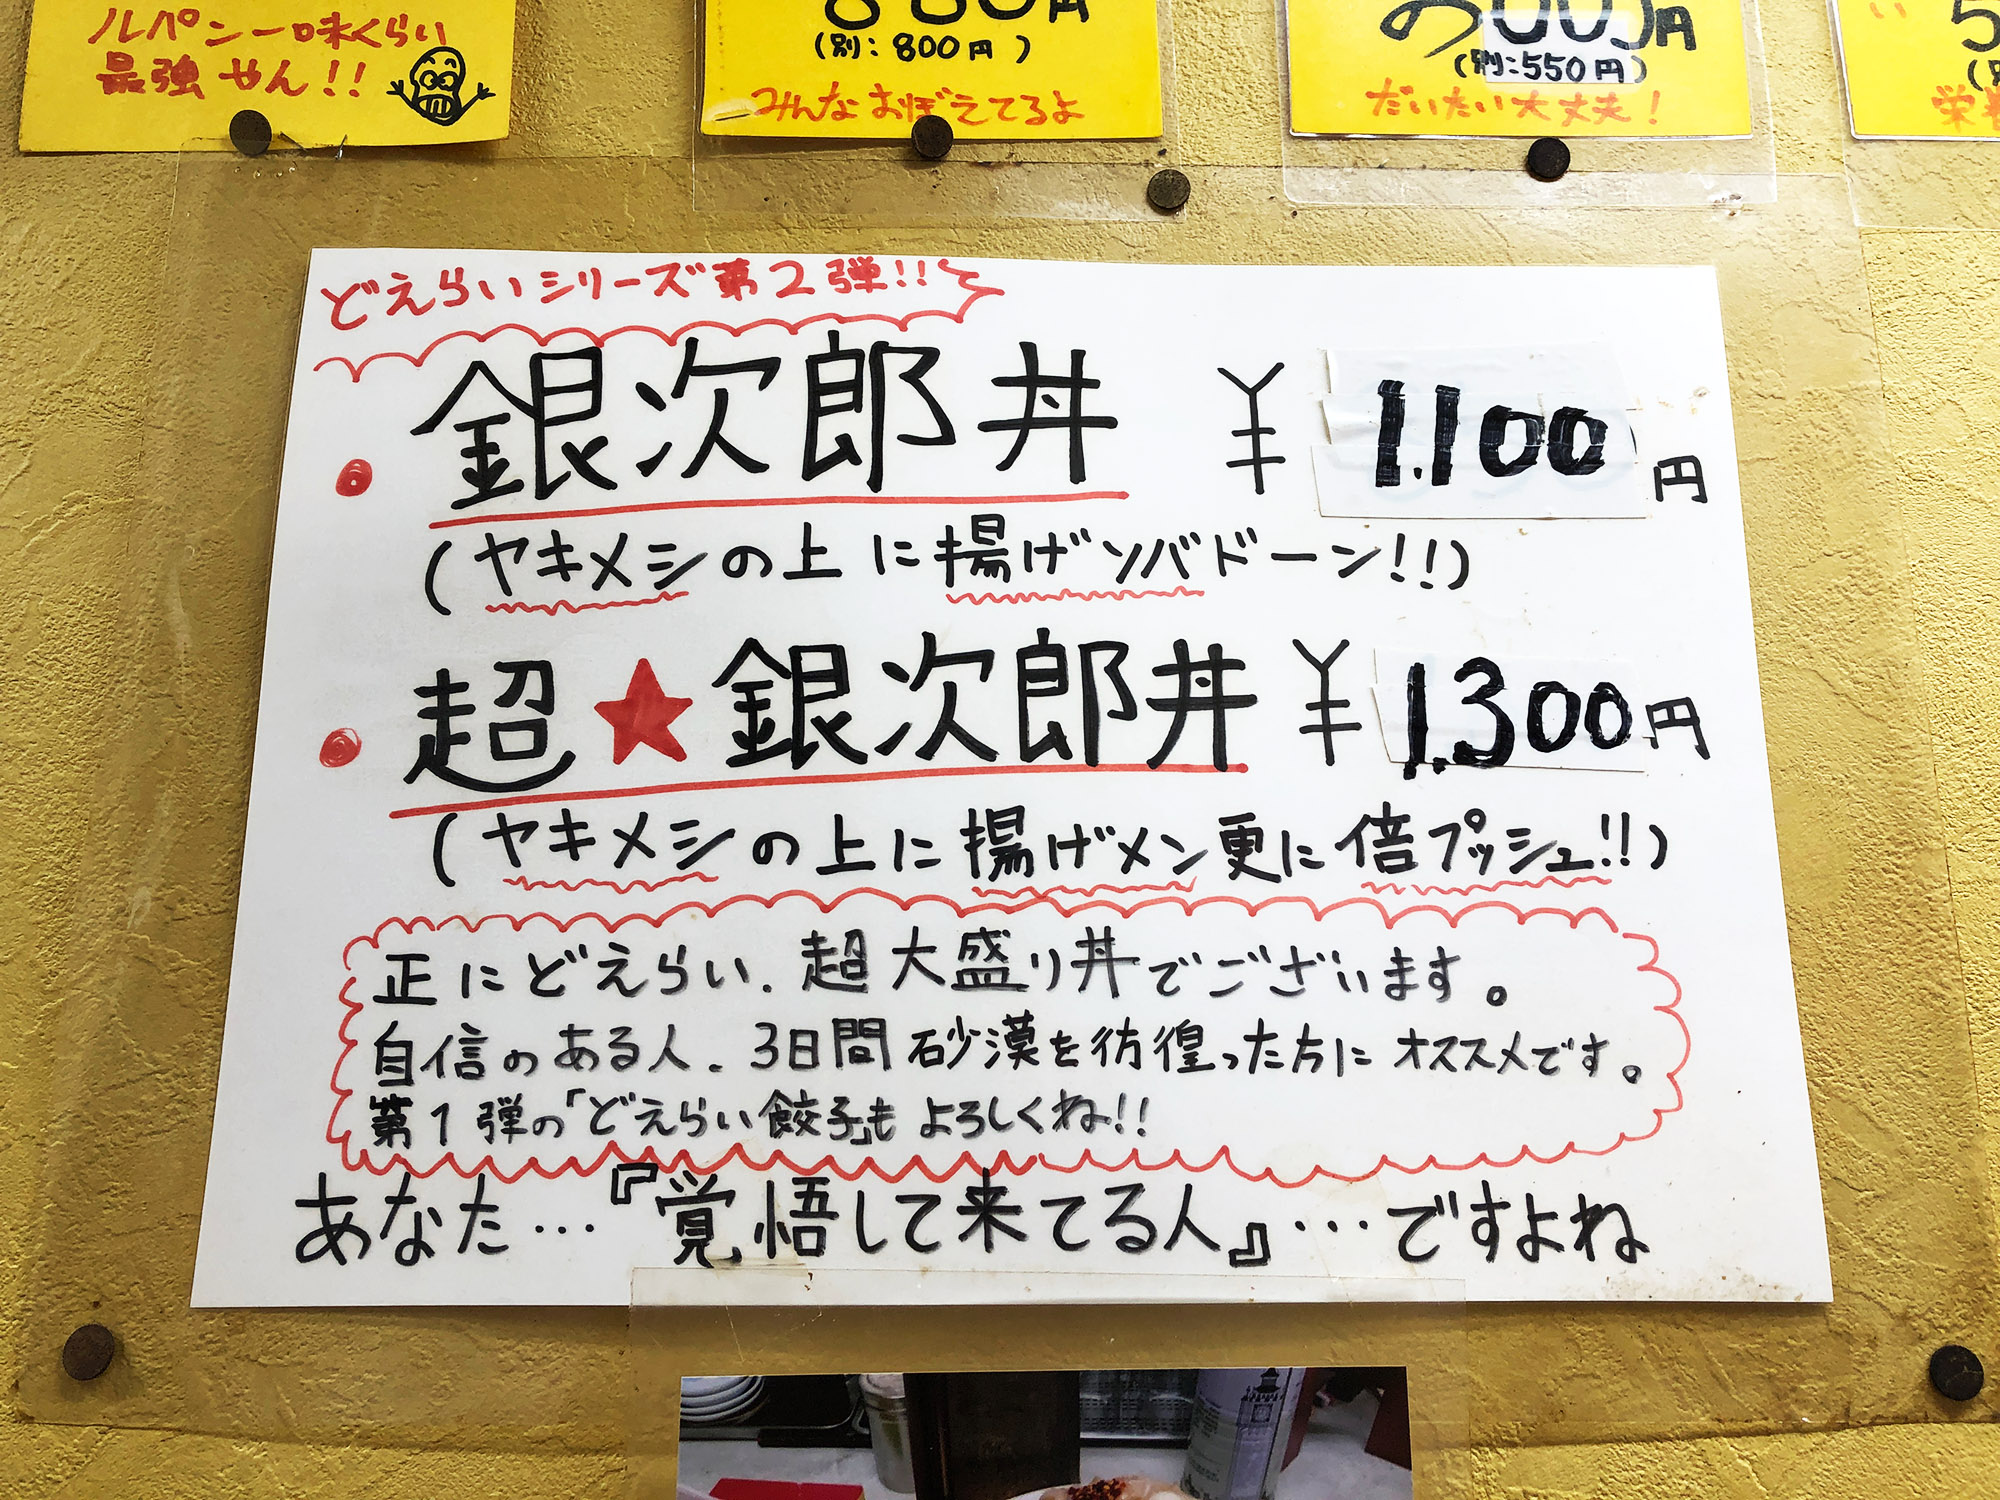 ルパン一味くらい
最強やん!!
880円
(別:800円)
みんなおぼえてるよ
(別:550円)
だいたい大丈夫!
どえらいシリーズ第2弾!!
・銀次郎丼 ¥1.100円
(ヤキメシの上に揚げソバドーン!!)
・超★銀次郎丼 ¥1.300円
(ヤキメシの上に揚げメン更に倍プッシュ!!)
正にどえらい、超大盛り丼でございます。
自信のある人、3日間砂漠を彷徨った方にオススメです。
第1弾の「どえらい餃子」もよろしくね!!
あなた…『覚悟して来てる人』…ですよね